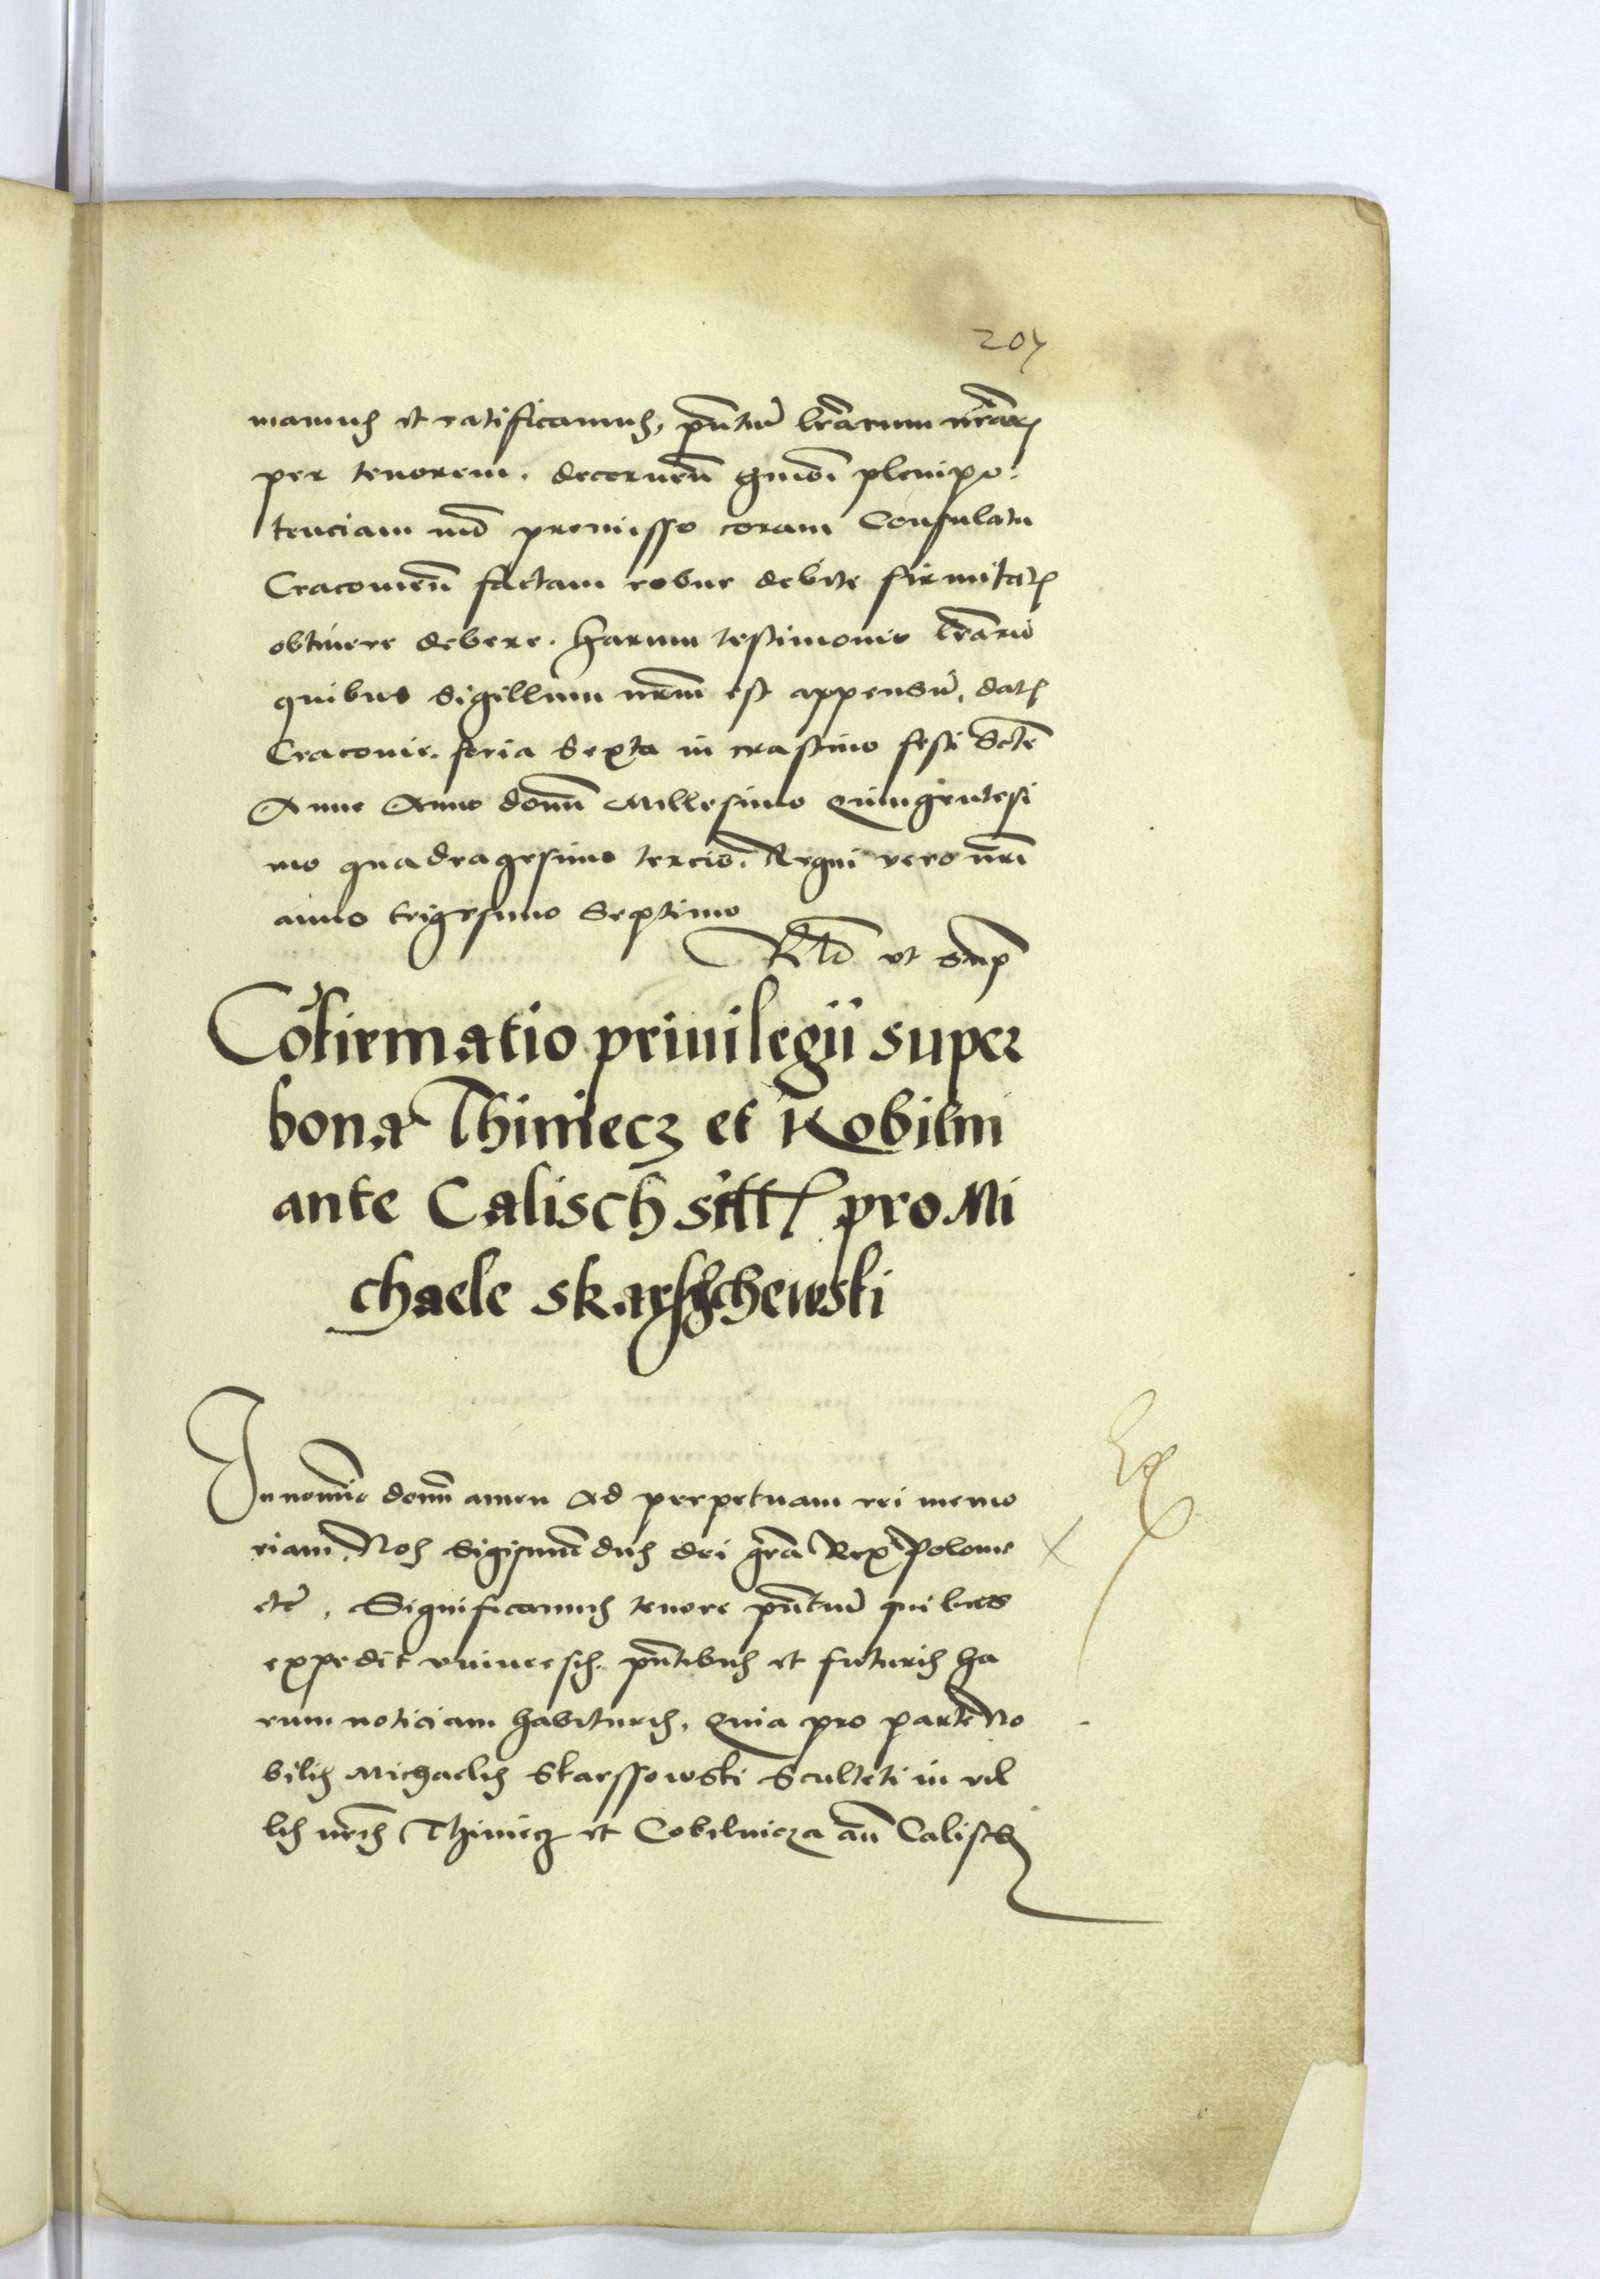 207
mamus et ratificamus, pñtiu lrarum nrarꝫ
per tenorem. decernen hmōi plenipo:
tenciam mō premisso coram Consulatu
Cracouien factam robur debite firmitatꝫ
obtinere debere. Harum testimonio lrarū
quibus sigillum nrm est appensū. datꝫ
Cracouie. feria sexta in crastino festi Scte
Anne Anno domī Millesimo Quingentesi
mo quadragesimo tercio. Regni vero nri
anno trigesimo septimo
Rlō vt sup
Cōfirmatio priuilegii super
bona Thiniecz et Kobilni
ante Calisch sitꝫ pro Mi
chaele Skarschewski
In nomīe domī amen Ad perpetuam rei memo
riam. Nos Sigismūdus dei gra Rex Polonie
etc. Significamus tenore pñtiū quibus
expedit vniuersis. pñtibus et futuris ha
rum noticiam habituris. Quia pro parte No
bilis Michaelis Skarssowski Sculteti in vil
lis nris Thiniecz et Cobilnicza añ Calisch